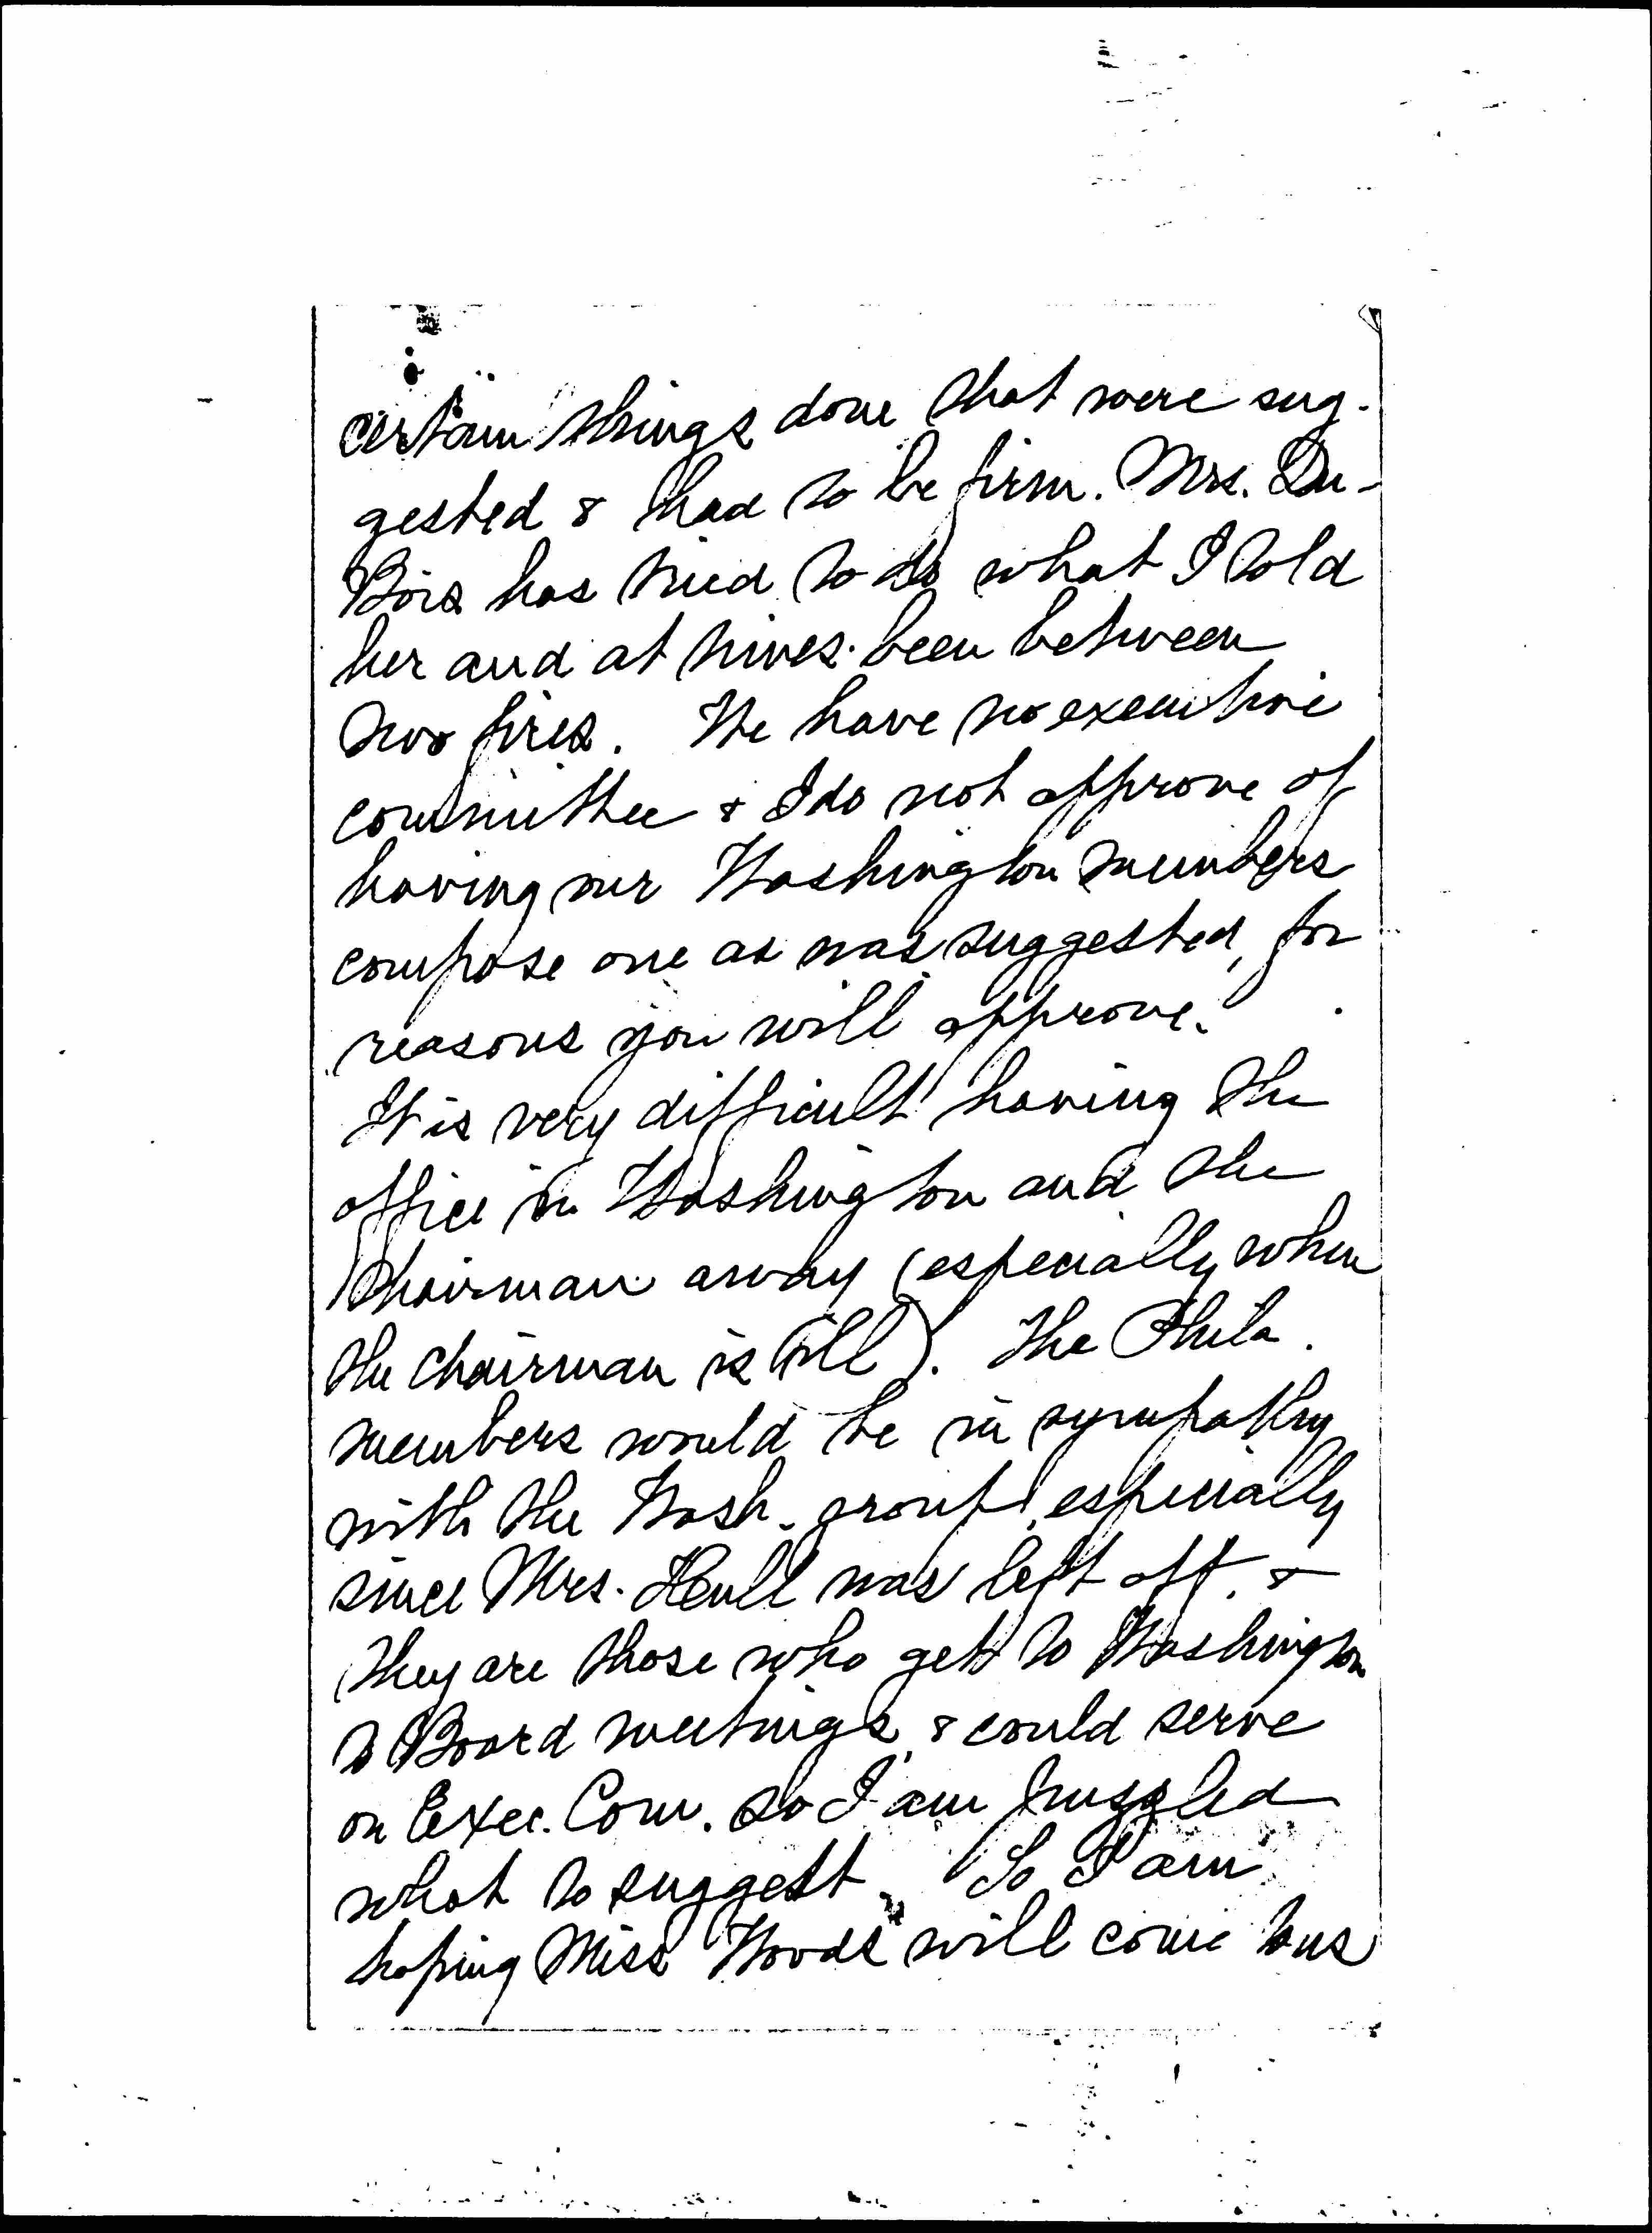 certain things done that were sug-
gested & had to be firm. Mrs. Du-
Bois has tried to do what I told
her and at times been between
two fires. We have no executive
committee & I do not approve of
having our Washington members
compose one as was suggested, for
reasons you will approve.
It is very difficult having the
office in Washington and the
Chairman away (especially when
the chairman is ill). The Phila.
members would be in sympathy
with the Wash. group, especially
since Mrs. Hull was left off, &
they are those who get to Washington
to Board meetings, & could serve
on Exec. Com. so I am puzzled
what to suggest. So I am
hoping Miss Woods will come to us